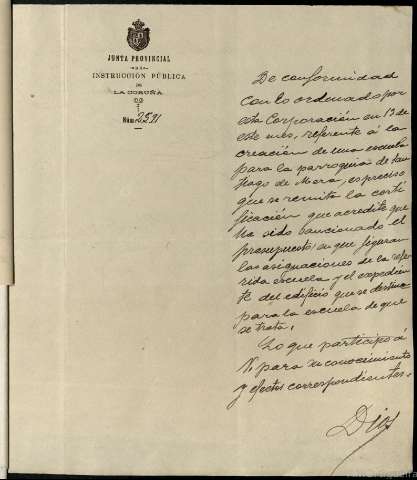 JUNTA PROVINCIAL
DE
INSTRUCCIÓN PÚBLICA
DE
LA CORUÑA
Núm. 2591
De conformidad
con lo ordenado por
esta Corporación en 13 de
este mes, referente á la
creación de una escuela
para la parroquia de San
tiago de Mera, es preciso
que se remita la certi
ficación que acredite que
ha sido sancionado el
presupuesto en que figuran
las asignaciones de la refe
rida escuela y el expedien
te del edificio que se destina
para la escuela de que
se trata.
Lo que participo á
V. para su conocimiento
y efectos correspondientes.
Dios